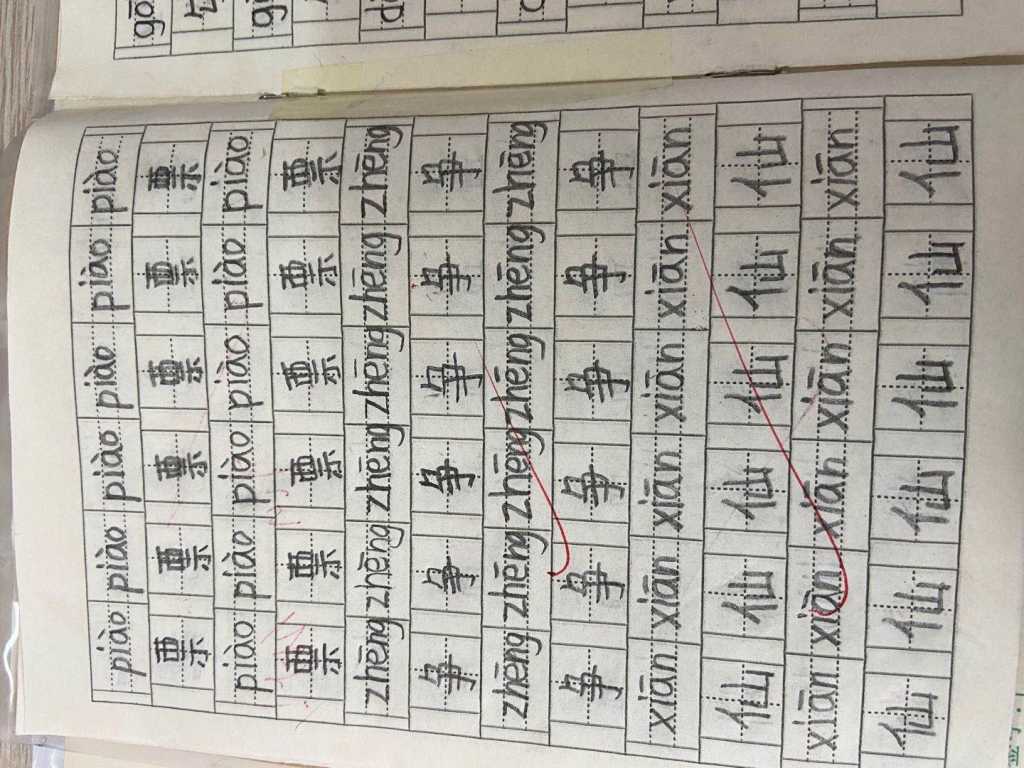 piào piào piào piào piào piào
票 票 票 票 票 票
piào piào piào piào piào piào
票 票 票 票 票 票
zhēng zhēng zhēng zhēng zhēng zhēng
争 争 争 争 争 争
zhēng zhēng zhēng zhēng zhēng zhēng
争 争 争 争 争 争
xiān xiān xiān xiān xiān xiān
仙 仙 仙 仙 仙 仙
xiān xiān xiān xiān xiān xiān
仙 仙 仙 仙 仙 仙